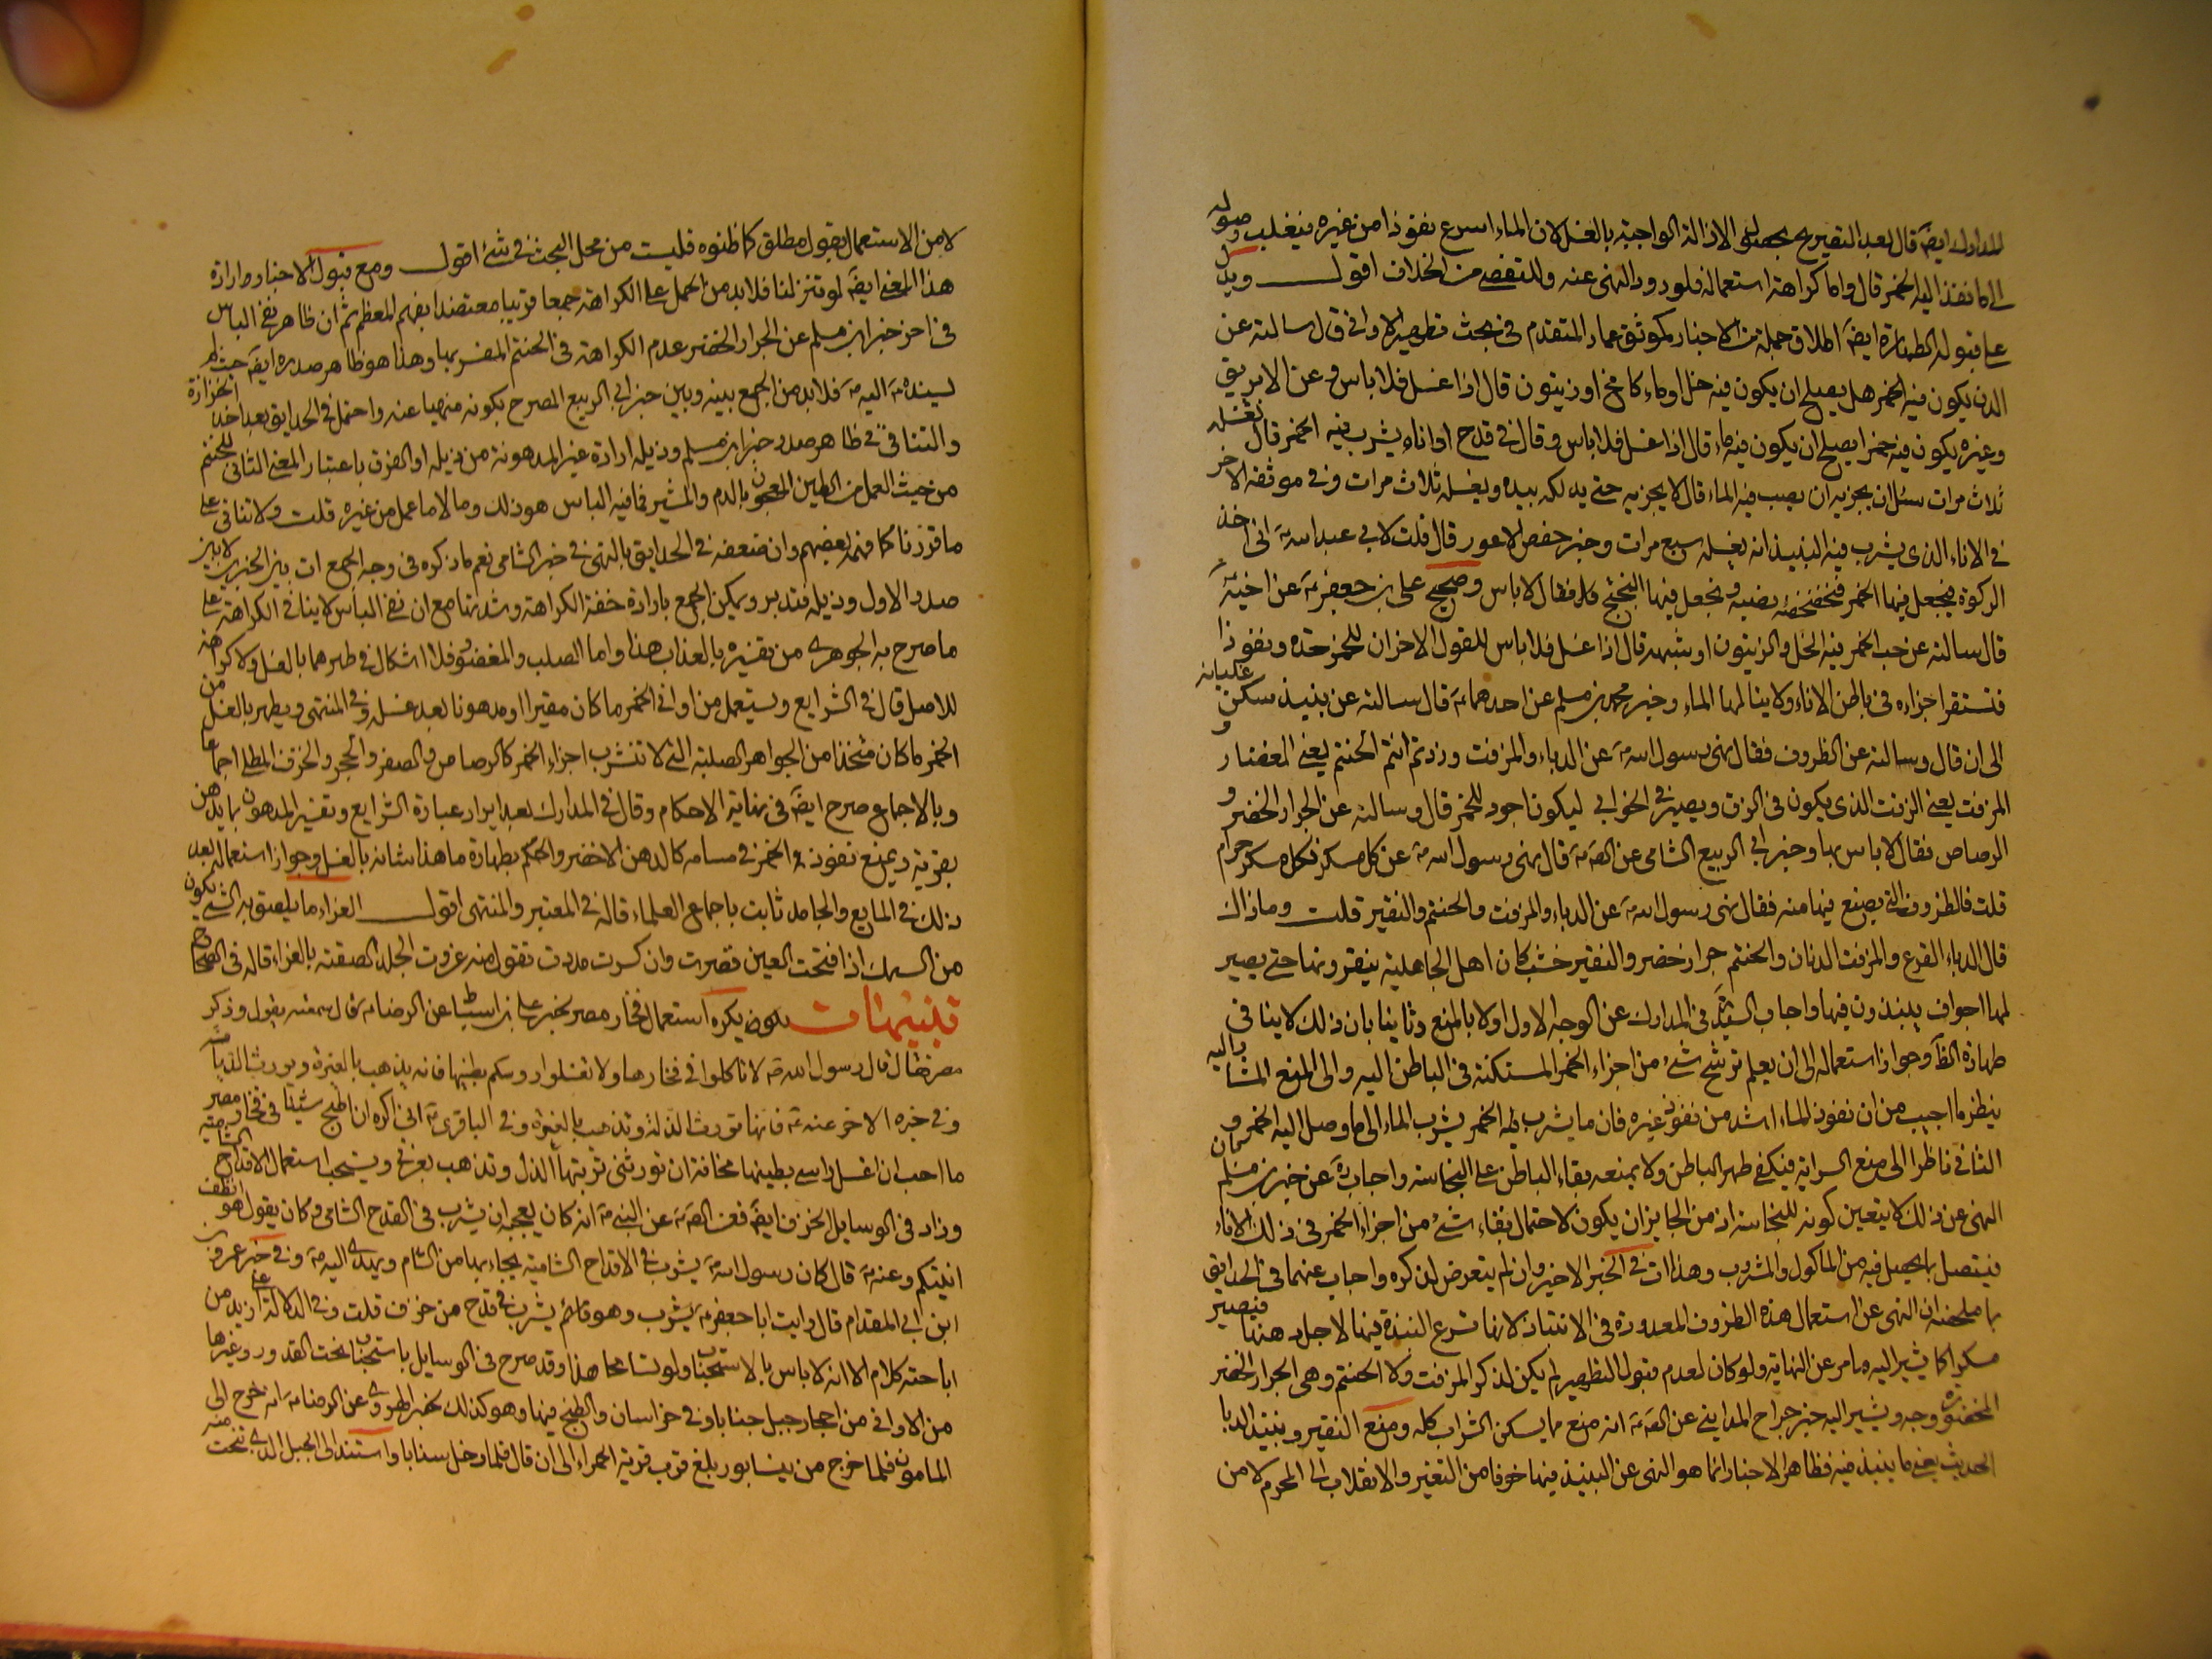 المدارك ايضً قال بعد التصريح بحصول الازالة الواجبة بالغسل لان الماء اسرع نفوذا من غيره فيغلب وصوله
الى ما نفذ اليه الخمر قال واما كراهة استعماله فلورود النهى عنه وللتفصى من الخلاف اقول ويدل
على قبوله الطهارة ايضً اطلاق جملة من الاخبار كموثق عمار المتقدم فى بحث تطهير الاوانى قال سالته عن
الدن يكون فيه الخمر هل يصلح ان يكون فيه خل او ماء كامخ او زيتون قال اذا غسل فلا باس وعن الابريق
وغيره يكون فيه خمر ايصلح ان يكون فيه ماء قال اذا غسل فلا باس وقال فى قدح او اناء يشرب فيه الخمر قال تغسله
ثلاث مرات سئل ان يجزيه ان يصب فيه الماء قال لا يجزيه حتى يدلكه بيده ويغسله ثلاث مرات وفى موثقه الاخر
فى الاناء الذى يشرب فيه النبيذ انه يغسله سبع مرات وخبر حفص الاعور قال قلت لابى عبد الله ع انى اخذ
الركوة فيجعل فيها الخمر فتخضخضه بصبه ونجعل فيها البختج فقال لا باس وصحيح على بن جعفر ع عن اخيه ع
قال سالته عن حب الخمر فيه الخل والزيتون او شبهه قال اذا غسل فلا باس للقول الاخر ان للخمر حدة ونفوذا
فتستقر اجزاءه فى باطن الاناء ولا ينالها الماء وخبر محمد بن مسلم عن احدهما ع قال سالته عن نبيذ سكن غليانه
الى ان قال وسالته عن الظروف فقال نهى رسول الله ص عن الدباء والمزفت وزدتم انتم الحنتم يعنى الغضار و
المزفت يعنى الزفت الذى يكون فى الزق ويصير فى الخوابى ليكون اجود للخمر قال وسالته عن الجرار الخضر و
الرصاص فقال لا باس بها وخبر ابى الربيع الشامى عن الصه ع قال نهى رسول الله ص عن كل مسكر فكل مسكر حرام
قلت فالظروف التى يصنع فيها منه فقال نهى رسول الله ص عن الدباء والمزفت والحنتم والنقير قلت وما ذاك
قال الدباء القرع والمزفت الدنان والحنتم جرار خضر والنقير خشب كان اهل الجاهلية ينقرونها حتى يصير
لها اجواف ينبذون فيها واجاب السيد فى المدارك عن الوجه الاول اولا بالمنع وثانيا بان ذلك لا ينافى
طهارة الظ وجواز استعماله الى ان يعلم ترشح شئ من اجزاء الخمر المستكنة فى الباطن اليه والى المنع المشار اليه
ينظر ما اجيب من ان نفوذ الماء اشد من نفوذ غيره فان ما يشرب فيه الخمر يشرب الماء الى ما وصل اليه الخمر و
الثانى ناظر الى منع السراية فيكفى طهر الباطن ولا يمنعه بقاء الباطن على النجاسة واجاب عن خبر ابن مسلم بان
النهى عن ذلك لا يتعين كونه للنجاسة اذ من الجايز ان يكون لاحتمال بقاء شئ من اجزاء الخمر فى ذلك الاناء
فيتصل بما يحصل فيه من الماكول والمشروب وهذا ات فى الخبر الاخير وان لم يتعرض لذكره واجاب عنهما فى الحدايق
بما ملخصه ان النهى عن استعمال هذه الظروف المعدودة فى الانتباذ لانها تسرع النبيذ فيها لاجل دهنها فيصير
مسكرا كما يشير اليه ما مر عن النهاية ولو كان لعدم قبولها التطهير لم يكن لذكر المزفت ولا الحنتم وهى الجرار الخضر
المخضورة وجه ويشير اليه خبر جراح المداينى عن الصه ع انه منع مما يسكن الشراب كله ومنع النقير ونبيذ الدبا
الحديث يعنى ما ينبذ فيه فظاهر الاخبار انما هو النهى عن النبيذ فيها خوفا من التغير والانقلاب الى المحرم لا من
لا من الاستعمال بقول مطلق كما ظنوه فليست من محل البحث فى شئ اقول ومع قبول الاخبار وارادة
هذا المعنى ايضً لو تنزلنا فلا بد من الحمل على الكراهة جمعا قريبا معتضدا بفهم المعظم ثم ان ظاهر نفى الباس
فى اخر خبر ابن مسلم عن الجرار الخضر عدم الكراهة فى الحنتم المفسر بها وهذا هو ظاهر صدره ايضً حيث لم
يسنده ع اليه ص فلا بد من الجمع بينه وبين خبر ابى الربيع المصرح بكونه منهيا عنه واحتمل فى الحدايق بعد اخذ الخزازة
والتنافى فى ظاهر صدر خبر ابن مسلم وذيله ارادة غير المدهونة من ذيله او الفرق باعتبار المعنى الثانى للحنتم
من حيث العمل من الطين المعجون بالدم والشعر فما فيه الباس هو ذلك وما لا ما عمل من غيره قلت ولا تنافى على
ما قررنا كما فهمه بعضهم وان ضعفه فى الحدايق بالنهى فى خبر الشامى نعم ما ذكره فى وجه الجمع ات بين الخبرين لا بين
صدر الاول وذيله فتدبر ويمكن الجمع بارادة خفة الكراهة وشدتها مع ان نفى الباس لا ينافى الكراهة على
ما صرح به الجوهرى من تفسيره بالعذاب هذا واما الصلب والمغضور فلا اشكال فى طهرهما بالغسل ولا كراهة
للاصل قال فى الشرايع ويستعمل من اوانى الخمر ما كان مقيرا او مدهونا بعد غسله وفى المنتهى ويطهر بالغسل من
الخمر ما كان متخذا من الجواهر الصلبة التى لا تنشرب اجزاء الخمر كالرصاص والصفر والحجر والخزف المطلى اجماعا
وبالاجماع صرح ايضً فى نهاية الاحكام وقال فى المدارك بعد ايراد عبارة الشرايع وتفسير المدهون بما يدهن
بقرينة ويمنع نفوذ الخمر فى مسامه كالدهن الاخضر والحكم بطهارة ما هذا شانه بالغسل وجواز استعماله بعد
ذلك فى المايع والجامد ثابت باجماع العلماء قاله فى المعتبر والمنتهى اقول الغراء ما يلصق به الشئ يكون
من السمك اذا فتحت الغين قصرت وان كسرت مددت تقول منه غروت الجلد الصقته بالغراء قاله فى الصحاح
تنبيهات يكره استعمال فخار مصر لخبر على بن اسباط عن الرضا ع قال سمعته يقول وذكر
مصر فقال قال رسول الله ص لا تاكلوا فى فخارها ولا تغسلوا روسكم بطينها فانه يذهب بالغيرة ويورث الدياثة
وفى خبره الاخر عنه ع فانها تورث الذلة وتذهب بالغيرة وفى الباقرى ع انى اكره ان اطبخ شيئا فى فخار مصر و
ما احب ان اغسل راسى بطينها مخافة ان تورثنى تربتها الذل وتذهب بغيرتى ويستحب استعمال الاقداح الشامية
وزاد فى الوسايل الخزف ايضً فعن الصه ع عن النبى ص انه كان يعجبه ان يشرب فى القدح الشامى وكان يقول هو انظف
انيتكم وعنه ع قال كان رسول الله ص يشرب فى الاقداح الشامية يجاء بها من الشام ويهدى اليه ص وفى خبر عمرو
ابن ابى المقدام قال رايت ابا جعفر ع يشرب وهو قائم يشرب فى قدح من خزف قلت وفى الدلالة على ازيد من
اباحته كلام الا انه لا باس بالاستحباب ولو تسامحا هذا وقد صرح فى الوسايل باستحباب نحت القدور وغيرها
من الاوانى من احجار جبل جناباد فى خراسان والطبخ فيها وهو كذلك لخبر الهروى عن الرضا ع انه خرج الى
المامون فلما خرج من نيشابور بلغ قرب قرية الحمراء الى ان قال فلما دخل سناباد استند الى الجبل الذى تنحت منه